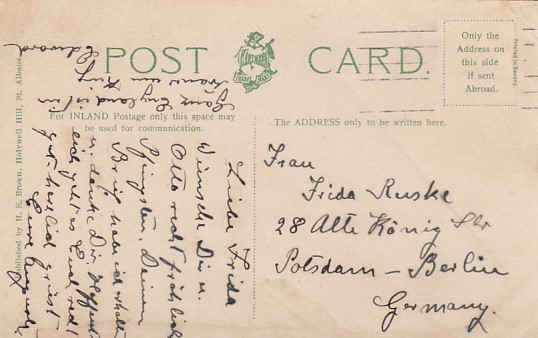 POST CARD.
Only the
Address on
this side
if sent
Abroad.
Printed in Saxony.
For INLAND Postage only this space may
be used for communication.
The ADDRESS only to be written here.
Published by H. E. Brown, Holywell Hill, St. Albans
Frau
Frida Ruske
28 Alte König Str
Potsdam – Berlin
Germany.
Liebe Frida
Wünsche Dir u.
Otto recht fröhlich
Pfingsten. Deinen
Brief habe ich erhalten
u. danke Dir. Hoffent
geht es Euch
gut. herzlich grüsst
Eure
Ganz England ist in
Trauer um King
Edward